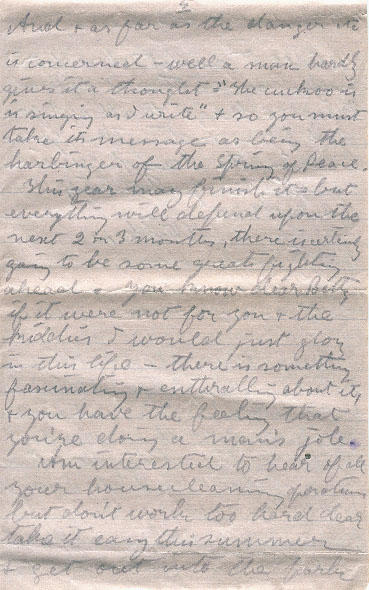 And & as far as the danger etc
is concerned – well a man hardly
gives it a thought = "The cuckoo is
is singing as I write" & so you must
take its message as being the
harbinger of the Spring of Peace.
This year may finish it – but
everything will depend upon the
next 2 or 3 months, there is certainly
going to be some great fighting
ahead – You know dear Betty
if it were not for you & the
kiddies I would just glory
in this life – there is something
fascinating & enthralling about it,
& you have the feeling that
you're doing a man's job.
am interested to hear of all
your housecleaning operations
but don't work too hard dear
take it easy this summer
& get out into the parks